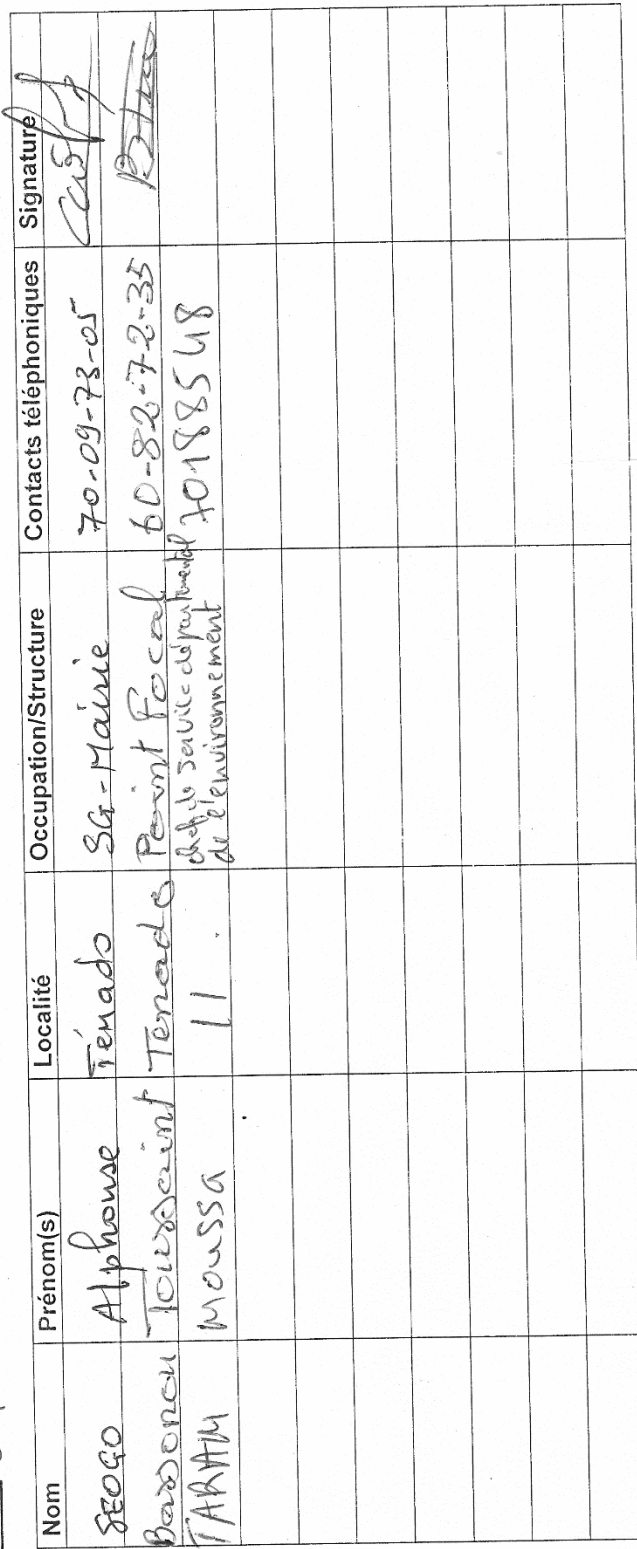 Nom Prénom(s) Localité Occupation/Structure Contacts téléphoniques Signature
SEOGO Alphonse Ténado SG-Mairie 70-09-73-05
Bassonon Toussaint Tenado Point Focal 60-82-72-35
TARAM Moussa 11 chef de service départemental 70188548
de l'environnement